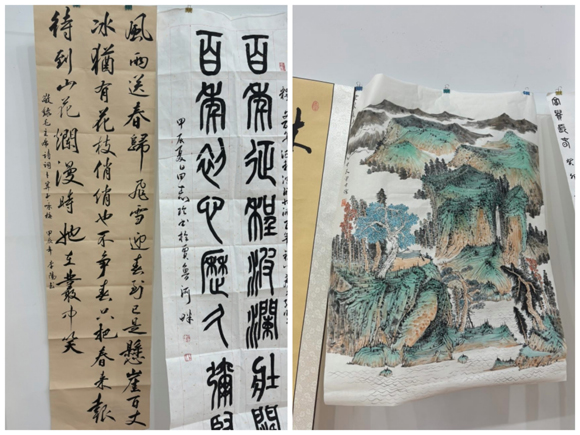 風雨送春歸飛雪迎春到已是懸崖百丈
冰猶有花枝俏俏也不爭春只把春來報
待到山花瀾漫時她在叢中笑
敬錄毛主席詩詞卜算子咏梅 甲辰年
百年征程波瀾壯闊
百年初心歷久彌堅
甲辰夏日田志玲書於賈魯河